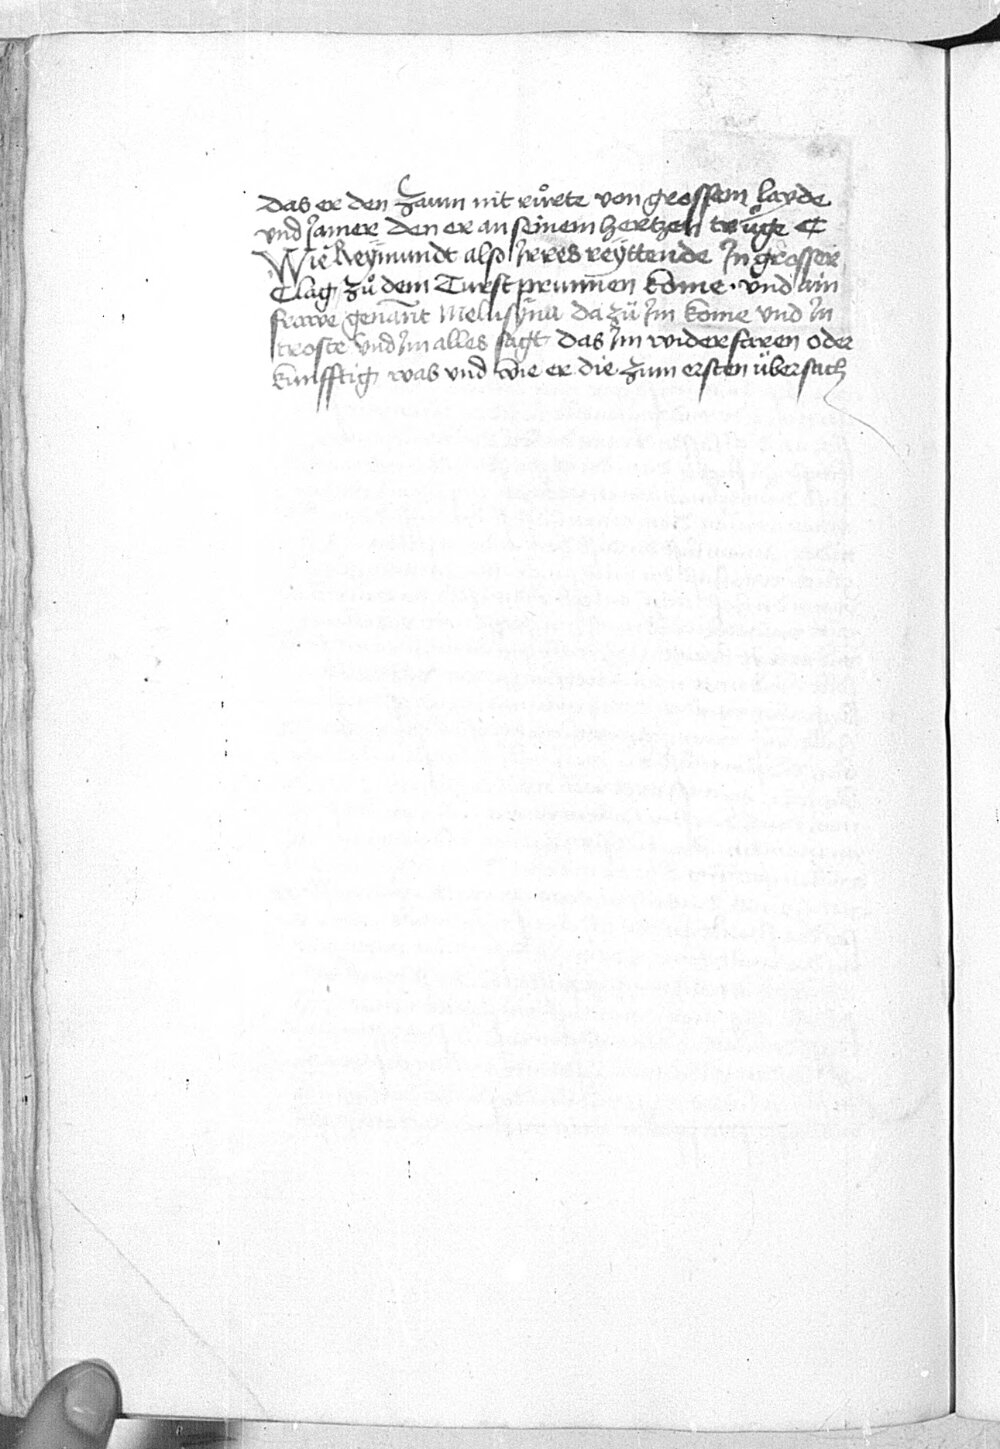 das er den zaum nit růrte von grossem layde
vnd Jamer den er an seinem hertzen trůge ¶
Wie Reymundt also Jrres reyttende Jn grosser
Clag zů dem Turst prunnen kome · vnd ain
frawe genannt Melusyna da zů Jm kome vnd Jn
troste vnd Jm alles sagt das Jm widerfaren oder
kunfftig was vnd wie er die zum ersten übersach